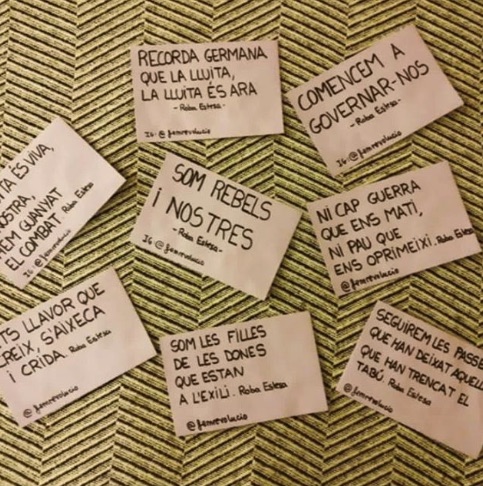 RECORDA GERMANA
QUE LA LLUITA,
LA LLUITA ÉS ARA
- Roba Estesa -
IG: @femrevolucio
COMENCEM A
GOVERNAR-NOS
- Roba Estesa -
IG: @femrevolucio
ÉS VIVA,
GUANYAT
EL COMBAT. Roba Estesa
IG: @femrevolucio
SOM REBELS
i NOSTRES
- Roba Estesa -
IG @femrevolucio
NI CAP GUERRA
QUE ENS MATI,
NI PAU QUE
ENS OPRIMEIXI. Roba Estesa
@femrevolucio
LLAVOR QUE
S'AIXECA
I CRIDA. Roba Estesa
@femrevolucio
SOM LES FILLES
DE LES DONES
QUE ESTAN
A L'EXILI. Roba Estesa
@femrevolucio
SEGUIREM LES PASSE
QUE HAN DEIXAT AQUELL
QUE HAN TRENCAT EL
TABÚ. Roba Estesa
@femrevolucio